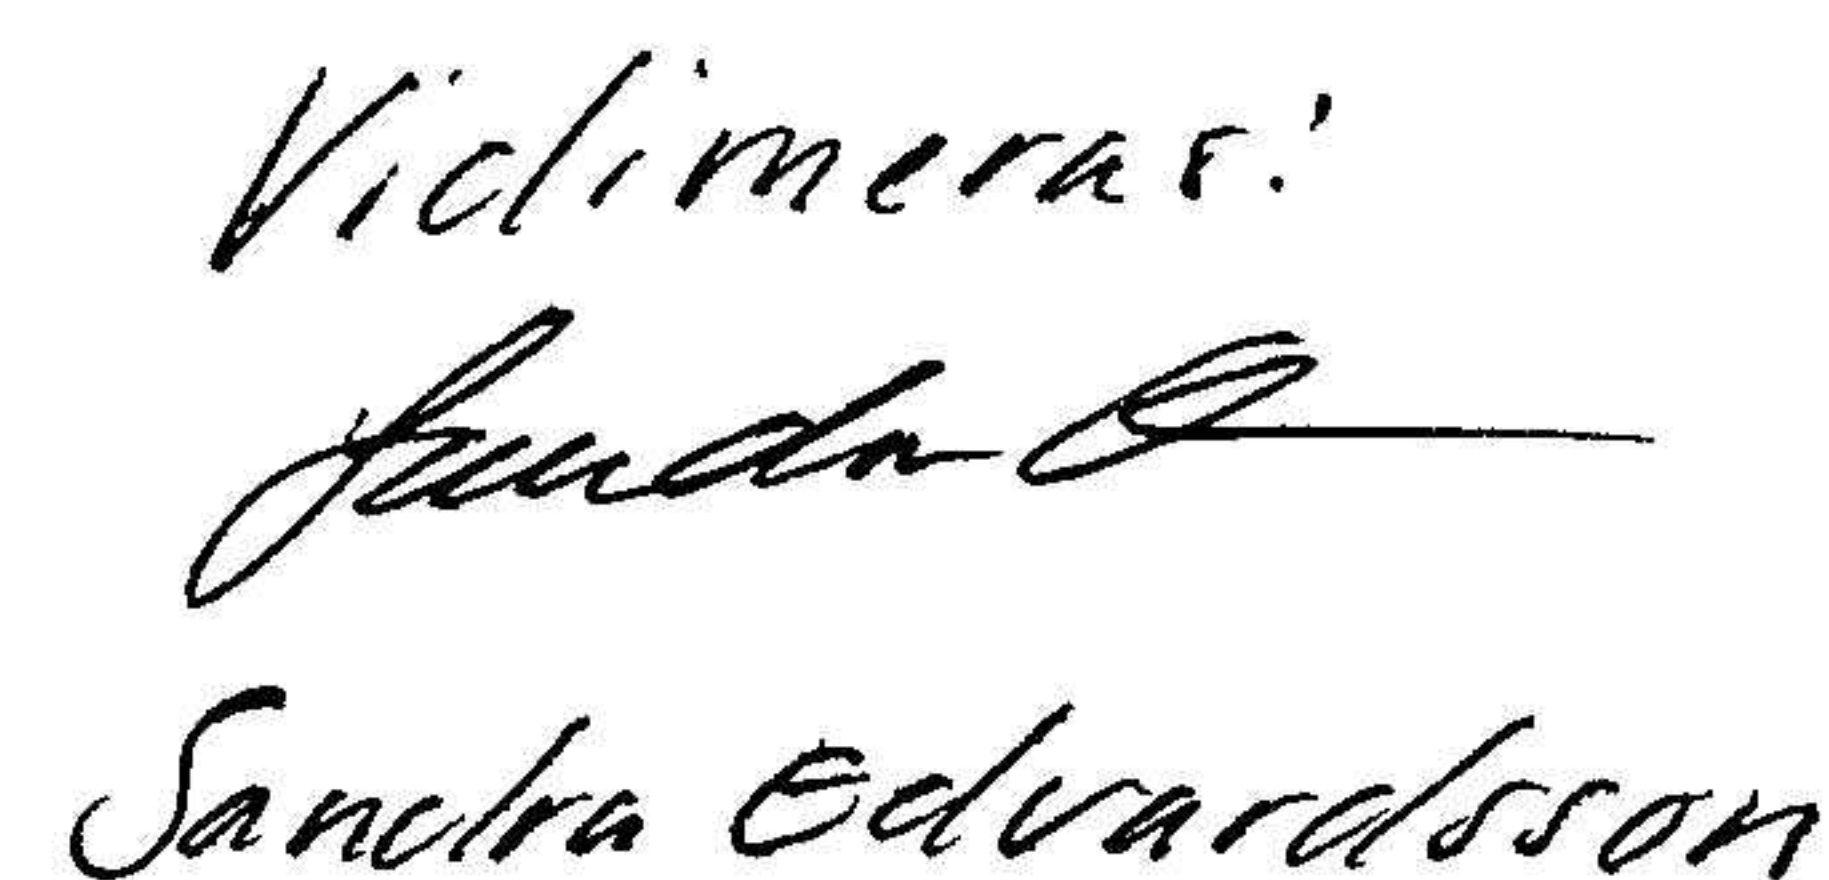 Vidimeras:
Sandra E
Sandra Edvardsson